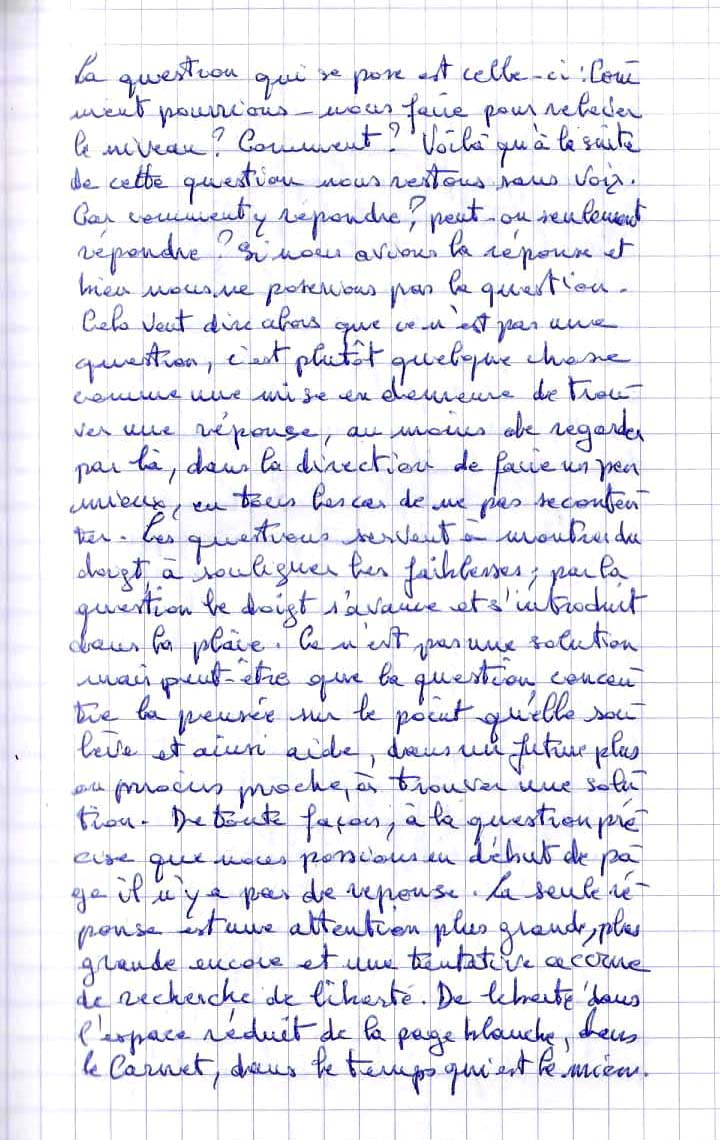 La question qui se pose est celle-ci : Com
ment pourrions-nous faire pour relever
le niveau ? Comment ? Voilà qu'à la suite
de cette question nous restons sans voix.
Car comment y répondre ? peut-on seulement
répondre ? Si nous avions la réponse et
bien nous ne poserions pas la question.
Cela veut dire alors que ce n'est pas une
question, c'est plutôt quelque chose
comme une mise en demeure de trou-
ver une réponse, au moins de regarder
par là, dans la direction de faire un peu
mieux, en tous les cas de ne pas se conten-
ter. Les questions servent à montrer du
doigt, à souligner les faiblesses ; par la
question le doigt s'avance et s'introduit
dans la plaie. Ce n'est pas une solution
mais peut-être que la question concen-
tre la pensée sur le point qu'elle sou-
lève et ainsi aide, dans un future plus
ou moins proche, à trouver une solu-
tion. De toute façon, à la question pré-
cise que nous possions en début de pa-
ge il n'y a pas de reponse. La seule ré-
ponse est une attention plus grande, plus
grande encore et une tentative accrue
de recherche de liberté. De liberté dans
l'espace réduit de la page blanche, dans
le Carnet, dans le temps qui est le mien.